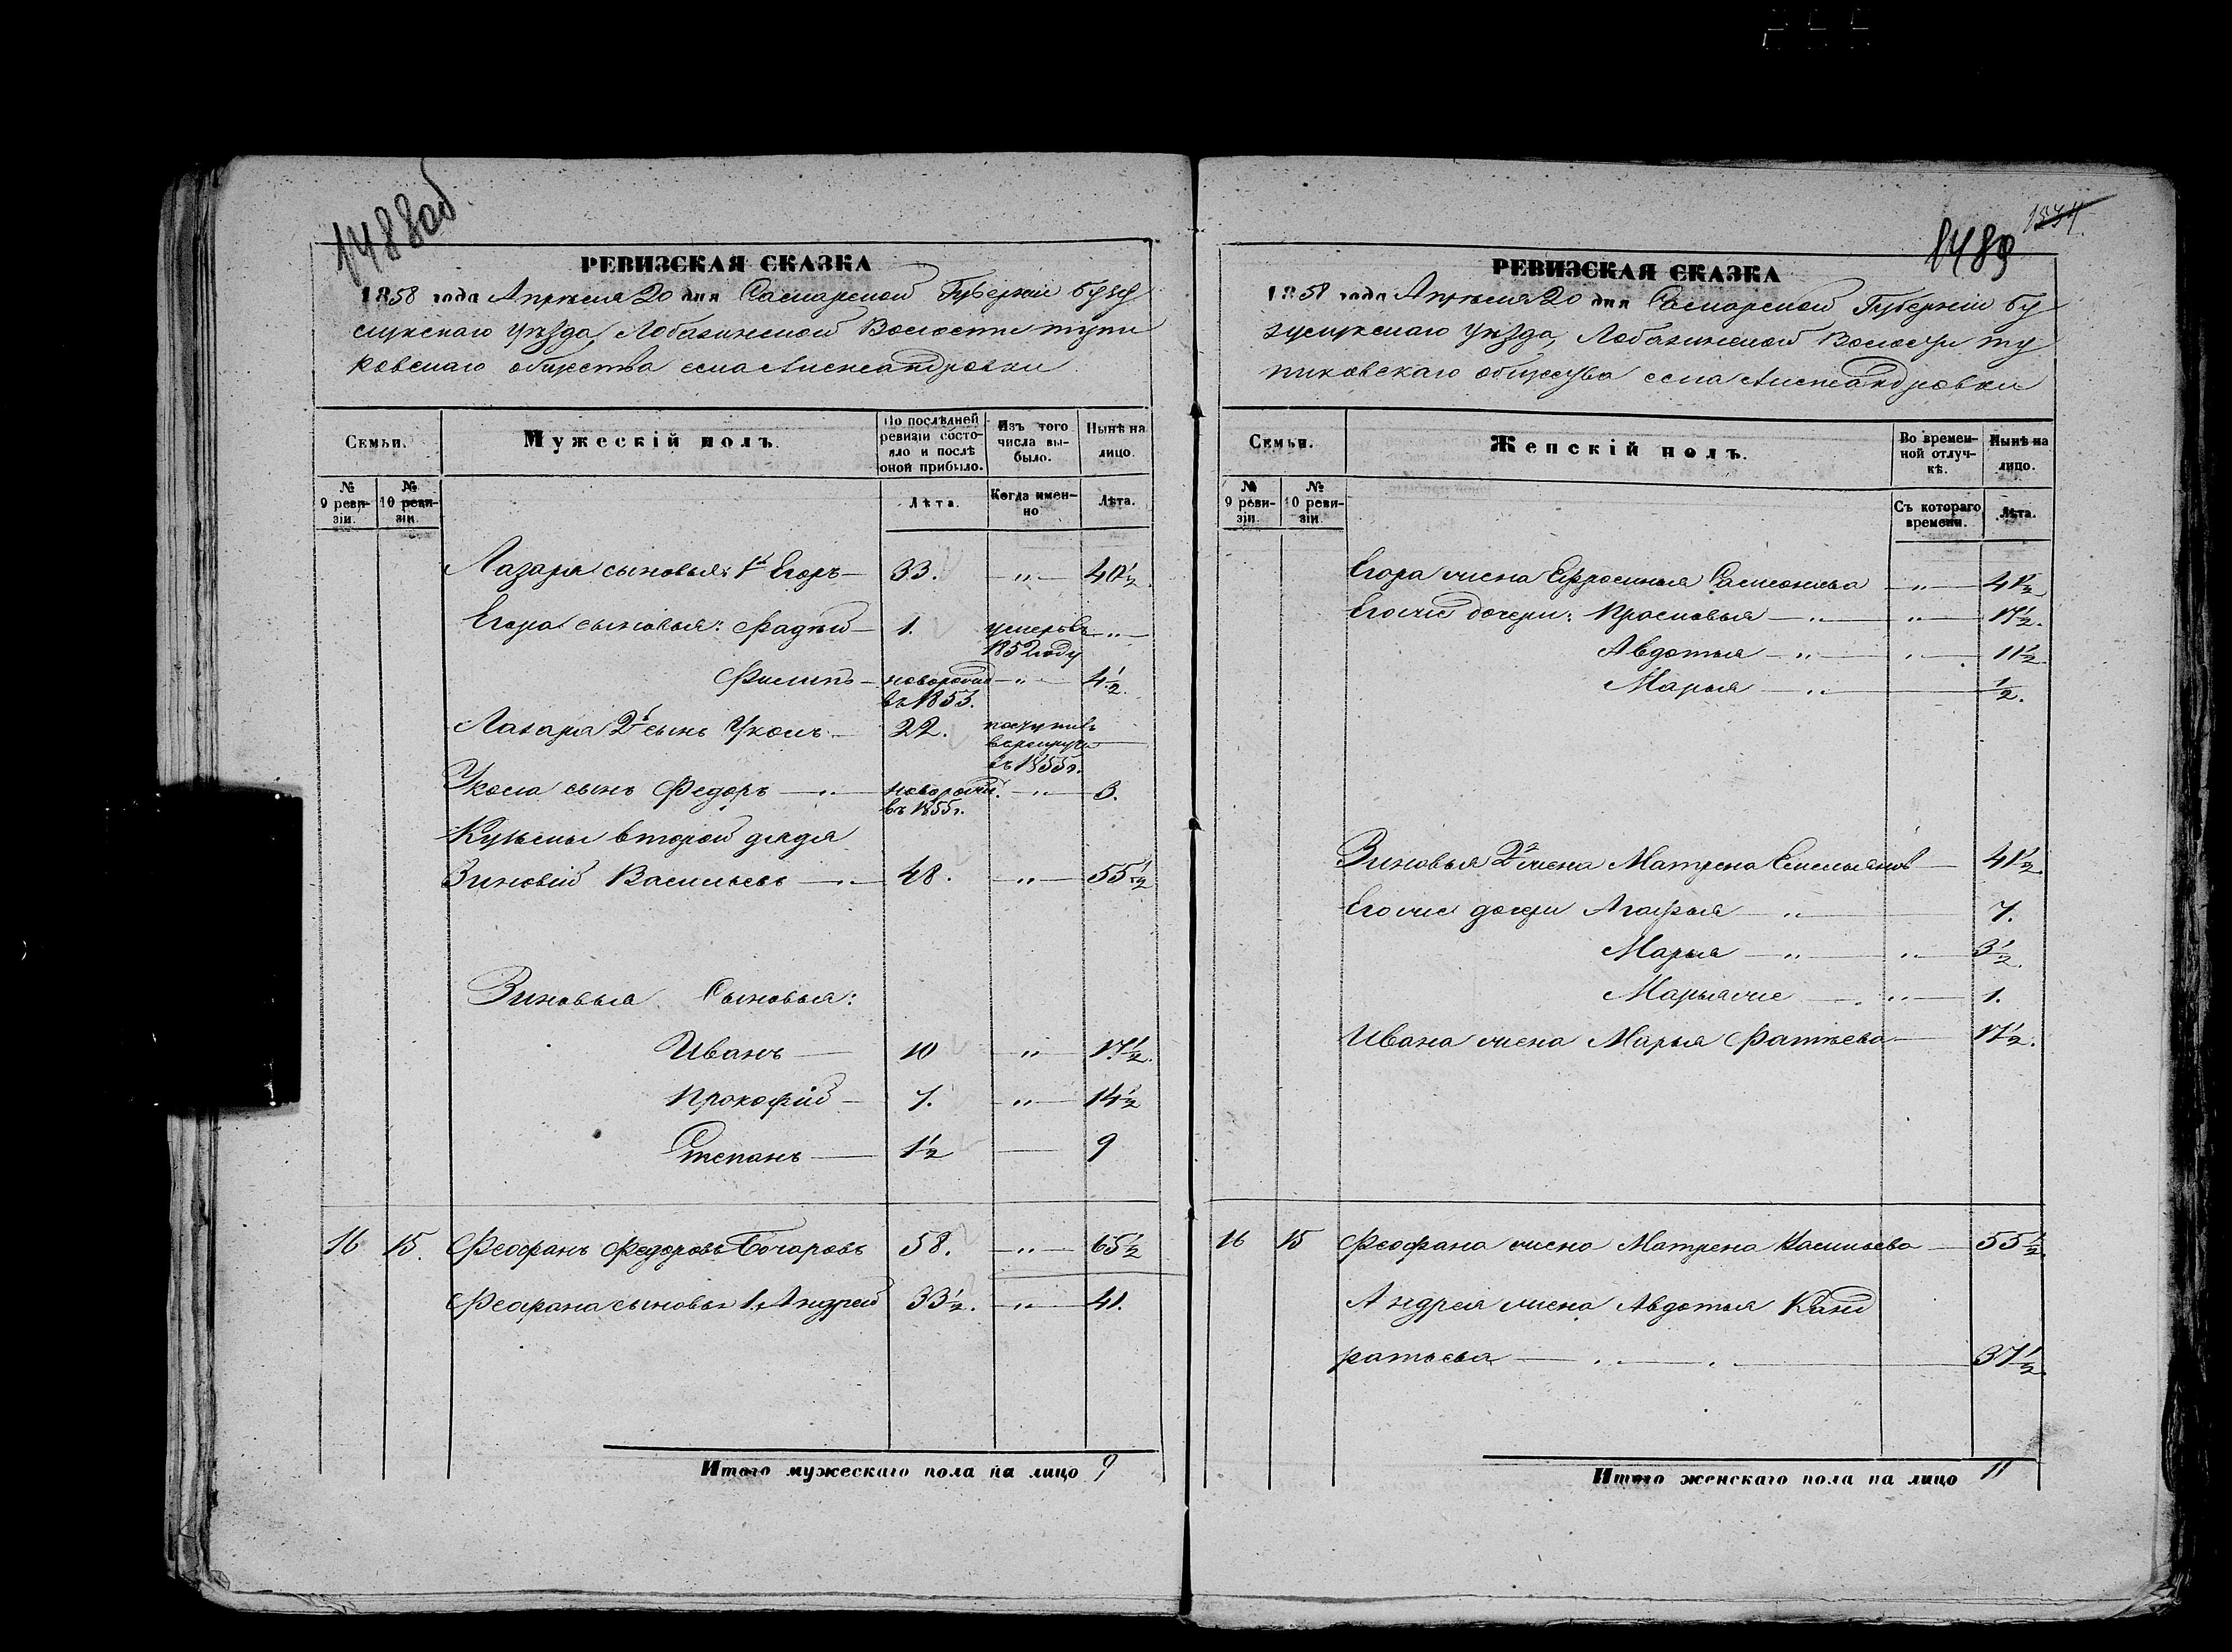 1488об
РЕВИЗСКАЯ СКАЗКА
1858 года Апрѣля 20 дня Самарской Губерніи бузу
лукскаго уѣзда, Лобазинской Волости тупи
ковскаго общества села Александровки
Семьи.
Мужескій полъ.
По послѣдней ревизіи состояло и послѣ оной прибыло.
Изъ того числа выбыло.
Нынѣ на лицо.
№ 9 ревизіи.
№ 10 ревизіи.
Лѣта.
Когда именно
Лѣта.
Лазаря сыновья: 1й Егоръ — 33. — „ — 40½.
Егора сыновья: Фадѣй — 1. умеръ въ 1852 году — „ —
Филипъ — новорожд въ 1853. — „ — 4½.
Лазаря 2й сынъ — 22. поступ въ рекруты въ 1855 г. —
сынъ Федоръ — „ — новорожд. въ 1855 г. — „ — 3.
Кузьмы второй дядя
Зиновій Васильевъ — „ — 48. — „ — 55½
Зиновья Сыновья:
Иванъ — 10 — „ — 17½.
Прокофій — 7. — „ — 14½
Степанъ — 1½ — 9
16 15. Феофанъ Федоровъ Бочаровъ 58. — „ — 65½
Феофана сыновья 1. Андрей 33½. — „ — 41.
Итого мужескаго пола на лицо 9
1534
1489
РЕВИЗСКАЯ СКАЗКА
1858 года Апрѣля 20 дня Самарской Губерніи бу
зулукскаго уѣзда, Лобазинской Волости ту
пиковскаго общества села Александровки
Семьи.
Женскій полъ.
Во временной отлучкѣ.
Нынѣ на лицо.
№ 9 ревизіи.
№ 10 ревизіи
Съ котораго времени.
Лѣта.
Егора жена Ефросинья Самсонова — „ — 41½
Егоже дочери: Прасковья — „ — „ — 17½.
Авдотья — „ — 11½.
Марья — „ — ½.
Зиновья 2я жена Матрена Емельянов — 41½.
Егоже дочери Агафья — „ — 7.
Марья — „ — „ — 3½.
Марьяже — „ — 1.
Ивана жена Марья Фатѣева — 17½.
16 15 Феофана жена Матрена Васильева — 55½.
Андрея жена Авдотья Канд
ратьева — 37½.
Итого женскаго пола на лицо 11